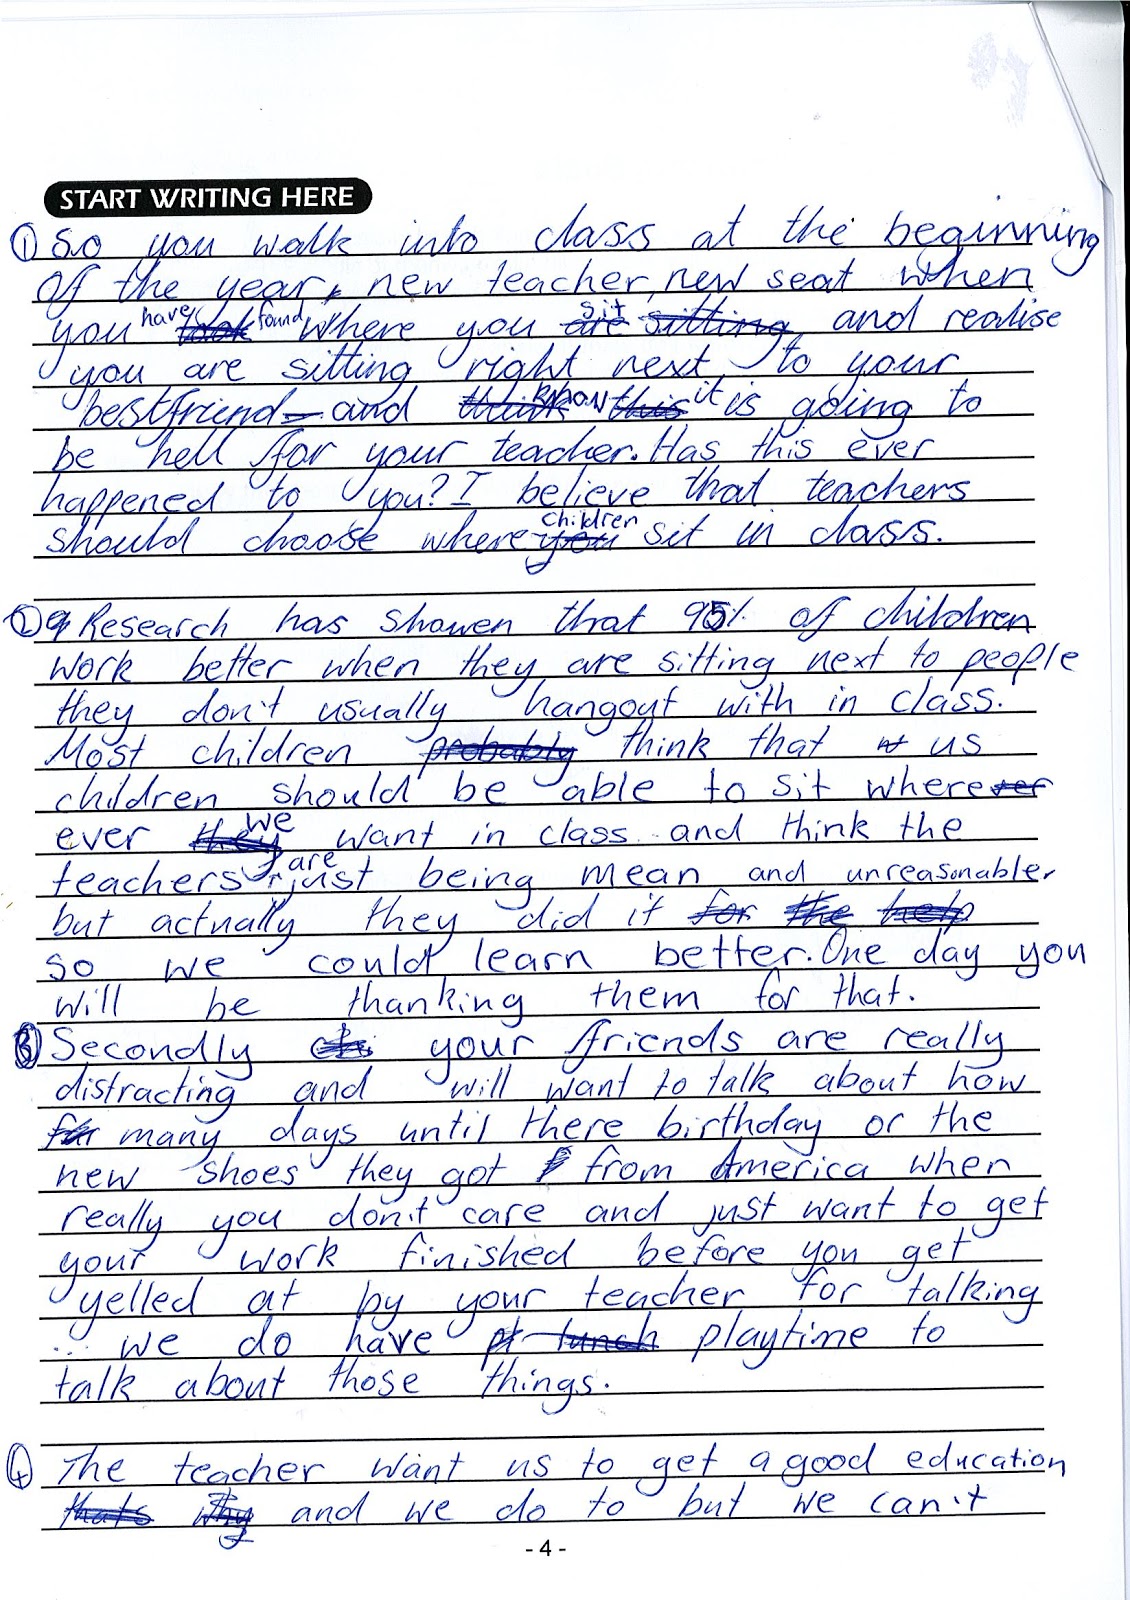 START WRITING HERE
① So you walk into class at the beginning
of the year, new teacher, new seat when
you have found where you sit and realise
you are sitting right next to your
bestfriend and know it is going to
be hell for your teacher. Has this ever
happened to you? I believe that teachers
should choose where children sit in class.
② Research has showen that 95% of children
work better when they are sitting next to people
they don't usually hangout with in class.
Most children think that us
children should be able to sit where
ever we want in class and think the
teachers are just being mean and unreasonable
but actually they did it
so we could learn better. One day you
will be thanking them for that.
③ Secondly your friends are really
distracting and will want to talk about how
many days until there birthday or the
new shoes they got from America when
really you don't care and just want to get
your work finished before you get
yelled at by your teacher for talking
... we do have playtime to
talk about those things.
④ The teacher want us to get a good education
and we do to but we can't
- 4 -